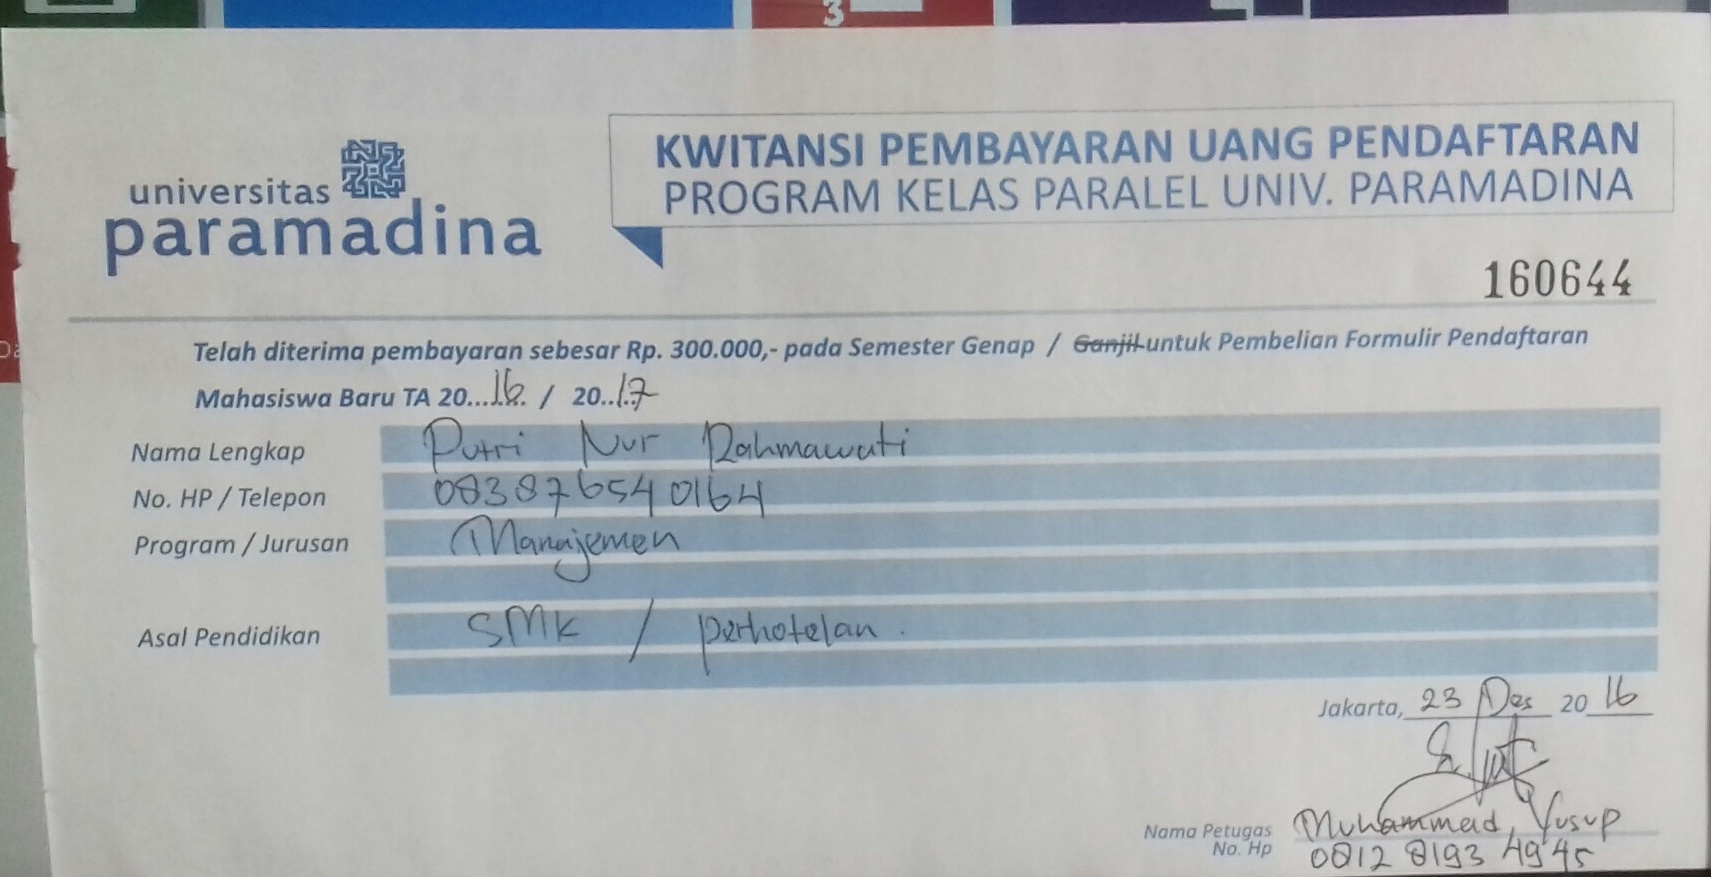 3
universitas
paramadina
KWITANSI PEMBAYARAN UANG PENDAFTARAN
PROGRAM KELAS PARALEL UNIV. PARAMADINA
160644
Telah diterima pembayaran sebesar Rp. 300.000,- pada Semester Genap / Ganjil untuk Pembelian Formulir Pendaftaran
Mahasiswa Baru TA 20...16.. / 20..17
Nama Lengkap Putri Nur Rahmawati
No. HP / Telepon 083876540164
Program / Jurusan Manajemen
Asal Pendidikan SMK / perhotelan.
Jakarta, 23 Des 20 16
Nama Petugas Muhammad Yusup
No. Hp 0812 8193 4945